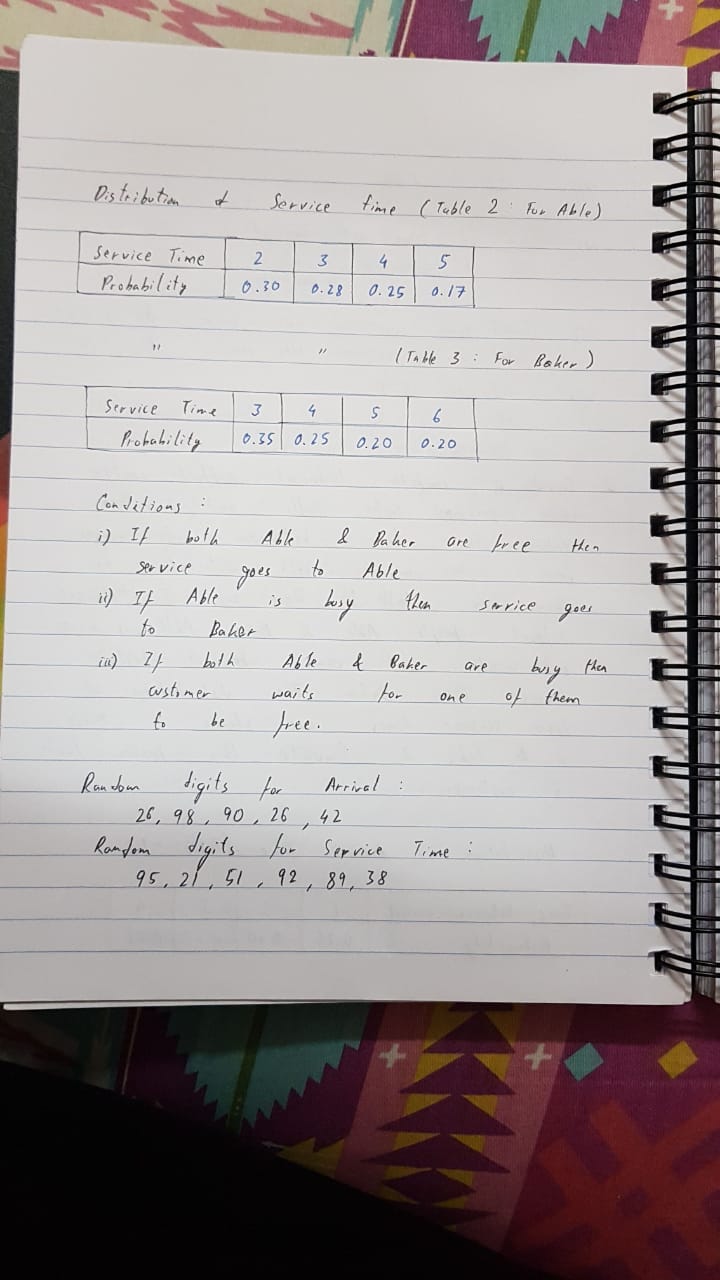 Distribution of Service time (Table 2 : For Able)
Service Time 2 3 4 5
Probability 0.30 0.28 0.25 0.17
" " (Table 3 : For Baker)
Service Time 3 4 5 6
Probability 0.35 0.25 0.20 0.20
Conditions :
i) If both Able & Baker are free then
service goes to Able
ii) If Able is busy then service goes
to Baker
iii) If both Able & Baker are busy then
customer waits for one of them
to be free.
Random digits for Arrival :
26, 98, 90, 26, 42
Random digits for Service Time :
95, 21, 51, 92, 89, 38